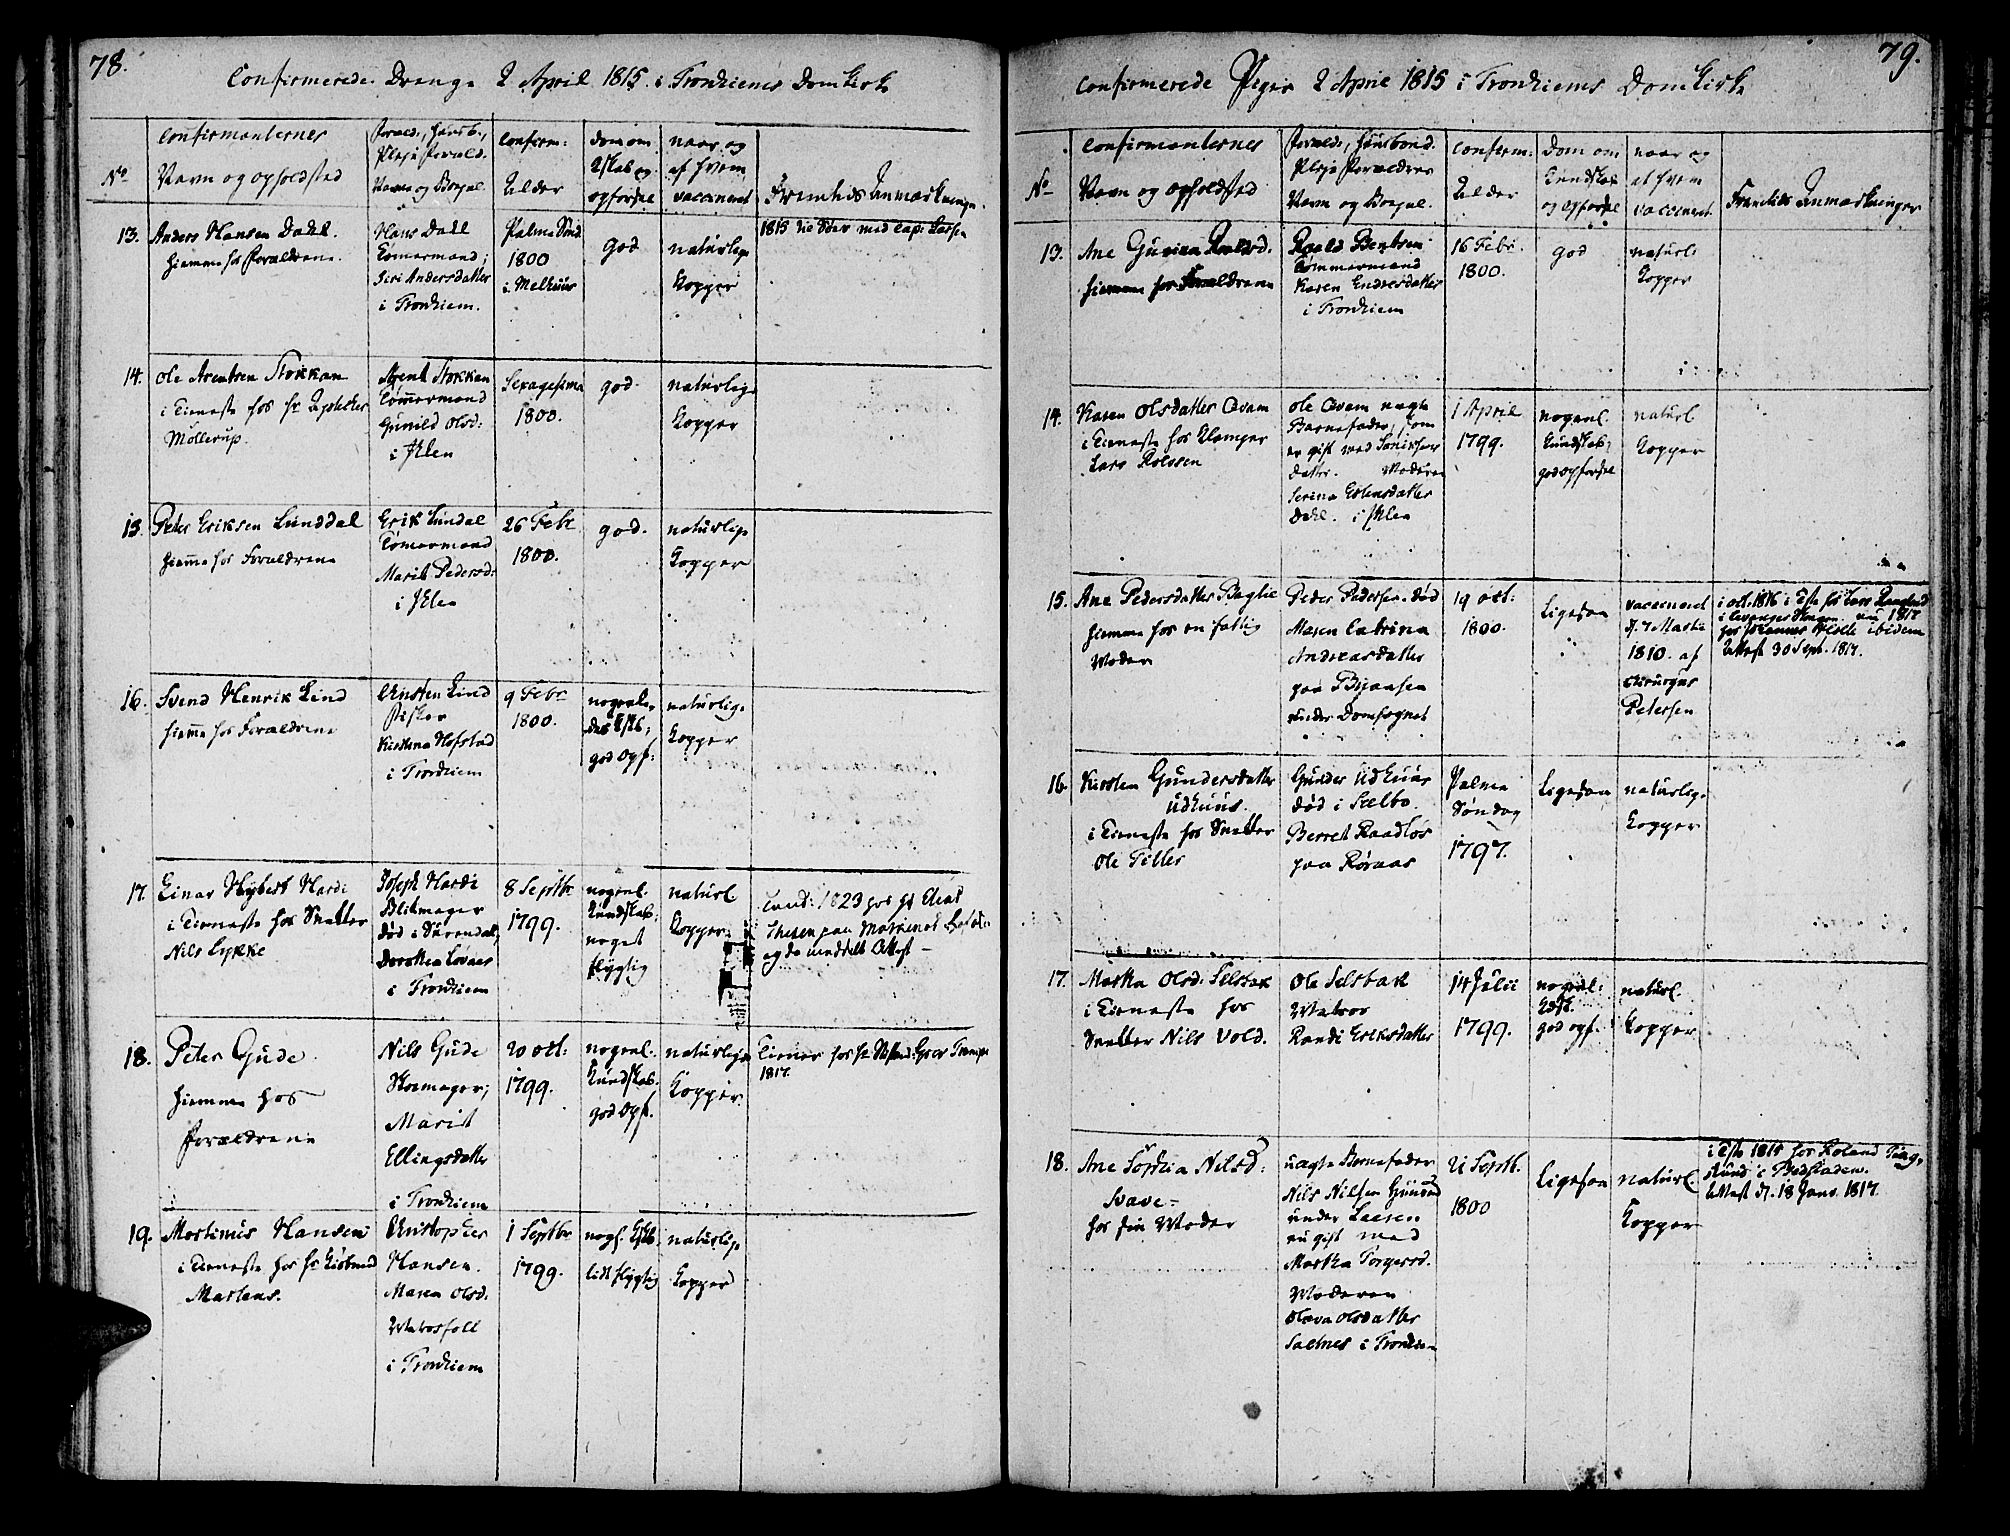 78.
Confirmerede Drenge 2 April 1815 i Trondhiems Domkirke
No
Confirmanternes
Navn og opholdsted
Foræld., Huusb.,
Pleje Foræld.
Navn og Borgel.
Confirm:
Alder
Dom om
Kskab og
opførsel
naar og
af hvem
vaccineret
Fremtids Anmærkninge.
13. Anders Hansen Dahl.
hiemme hos Forældrene.
Hans Dahl
Tømermand;
Siri Andersdatter
i Trondhiem.
Palme Sønd
1800
i Melhuus
god
naturlige
Kopper
1815 til Søes med Cap: Larsen
14. Ole Arentsen Stokkan
i Tieneste hos Hr Apoteker
Møllerup.
Arent Stokkan
Tømmermand
Gunild Olsd:
i Ihlen
Sexagesima
1800.
god.
naturlige
Kopper
15. Peter Eriksen Lunddal
hiemme hos Forældrene
Erik Lundal
Tømermand
Marit Pedersd:
i Ihlen
26 Febr
1800.
god.
naturlige
Kopper
16. Svend Henrik Lind
hiemme hos Forældrene
Christen Lind
Fisker
Kirstina Hofstad
i Trondhiem
9 Febr
1800.
nogenle-
des Kskb;
god opf:
naturlige
Kopper
17. Einar Hybert Hardi
i Tieneste hos Snekker
Nils Lykke
Joseph Hardi
Blikmager
død i Surendal,
Dorothea Løvaas
i Trondhiem
8 Septbr
1799.
nogenl.
Kundskab;
noget
flygtig
naturl
Kopper
1823 hos Hr
og da meddelt Attest —
18. Peter Gude
hiemme hos
Forældrene
Nils Gude
Skomager;
Marit
Ellingsdatter
i Trondhiem
20 Oct:
1799.
nogenl.
Kundskab.
god opf.
naturlige
Kopper.
Tiener hos Hr Stiftamd: Grev Trampe
1817.
19. Mortinus Hansen
i Tieneste hos Hr Kiøbmd
Martens.
Christopher
Hansen.
Maren Olsd.
Matrosfolk
i Trondhiem
1 Septbr
1799.
nogl. Kskb
lidt flygtig
naturlige
Kopper
79.
Confirmerede Piger 2 April 1815 i Trondhiems Domkirke
No
Confirmanternes
Navn og opholdsted
Foræld., Huusbond.
Pleje Forældres
Navn og Borgel.
Confirm:
Alder
Dom om
Kundskab
og opførsel
naar og
af hvem
vaccineret
Fremtids Anmærkninger
13. Ane Gurina Roalsd.
hiemme hos Forældrene
Roald Bentsen
Tømmermand
Karen Endresdatter
i Trondhiem
16 Febr.
1800.
god
naturl.
Kopper
14. Karen Olsdatter Qvam
i Tieneste hos Klamper
Lars Rolssen
Ole Qvam uægte
Barnefader, som
er gift med
datter. Moderen
Serina Estensdatter
Dahl. i Ihlen
1 April
1799.
nogenl.
Kundskab;
god opførsel
naturl
Kopper
15. Ane Pedersdatter Baglie
hiemme hos en fattig
Moder
Peder Pedersen død
Maren Catrina
Andreasdatter
paa Bijaasen
under Domsognet
19 Oct:
1800.
Ligesaa
vaccineret
d. 7 Martii
1810. af
Chirurgus
Petersen
i Oct. 1816 i Tste hos Lars
i Levanger Skogen 1817
hos Johannes ibidem
Attest 30 Sept. 1817.
16. Kirsten Gundersdatter
Udhuus.
i Tieneste hos Snekker
Ole Tiller
Gunder Udhuus
død i Selbo.
Berret Raadløs
paa Røraas
Palme
Søndag
1797.
Ligesaa
naturlige
Kopper
17. Martha Olsd: Selsbak
i Tieneste hos
Snekker Nils Vold.
Ole Selsbak
Matros
Randi Eriksdatter
14 Julii
1799.
nogenl:
Kdsk.
god opf.
naturl.
Kopper
18. Ane Sophia Nilsd:
Svave-
hos sin Moder
uægte Barnefader
Nils Nilsen
under
nu gift med
Martha Torgersd.
Moderen
Olava Olsdatter
Saltnes i Trondhiem
21 Septb.
1800
Ligesaa
naturl.
Kopper
i Tste 1815 hos Roland Ting-
slund i Bedstaden.
Attest d. 18 Janv. 1817.